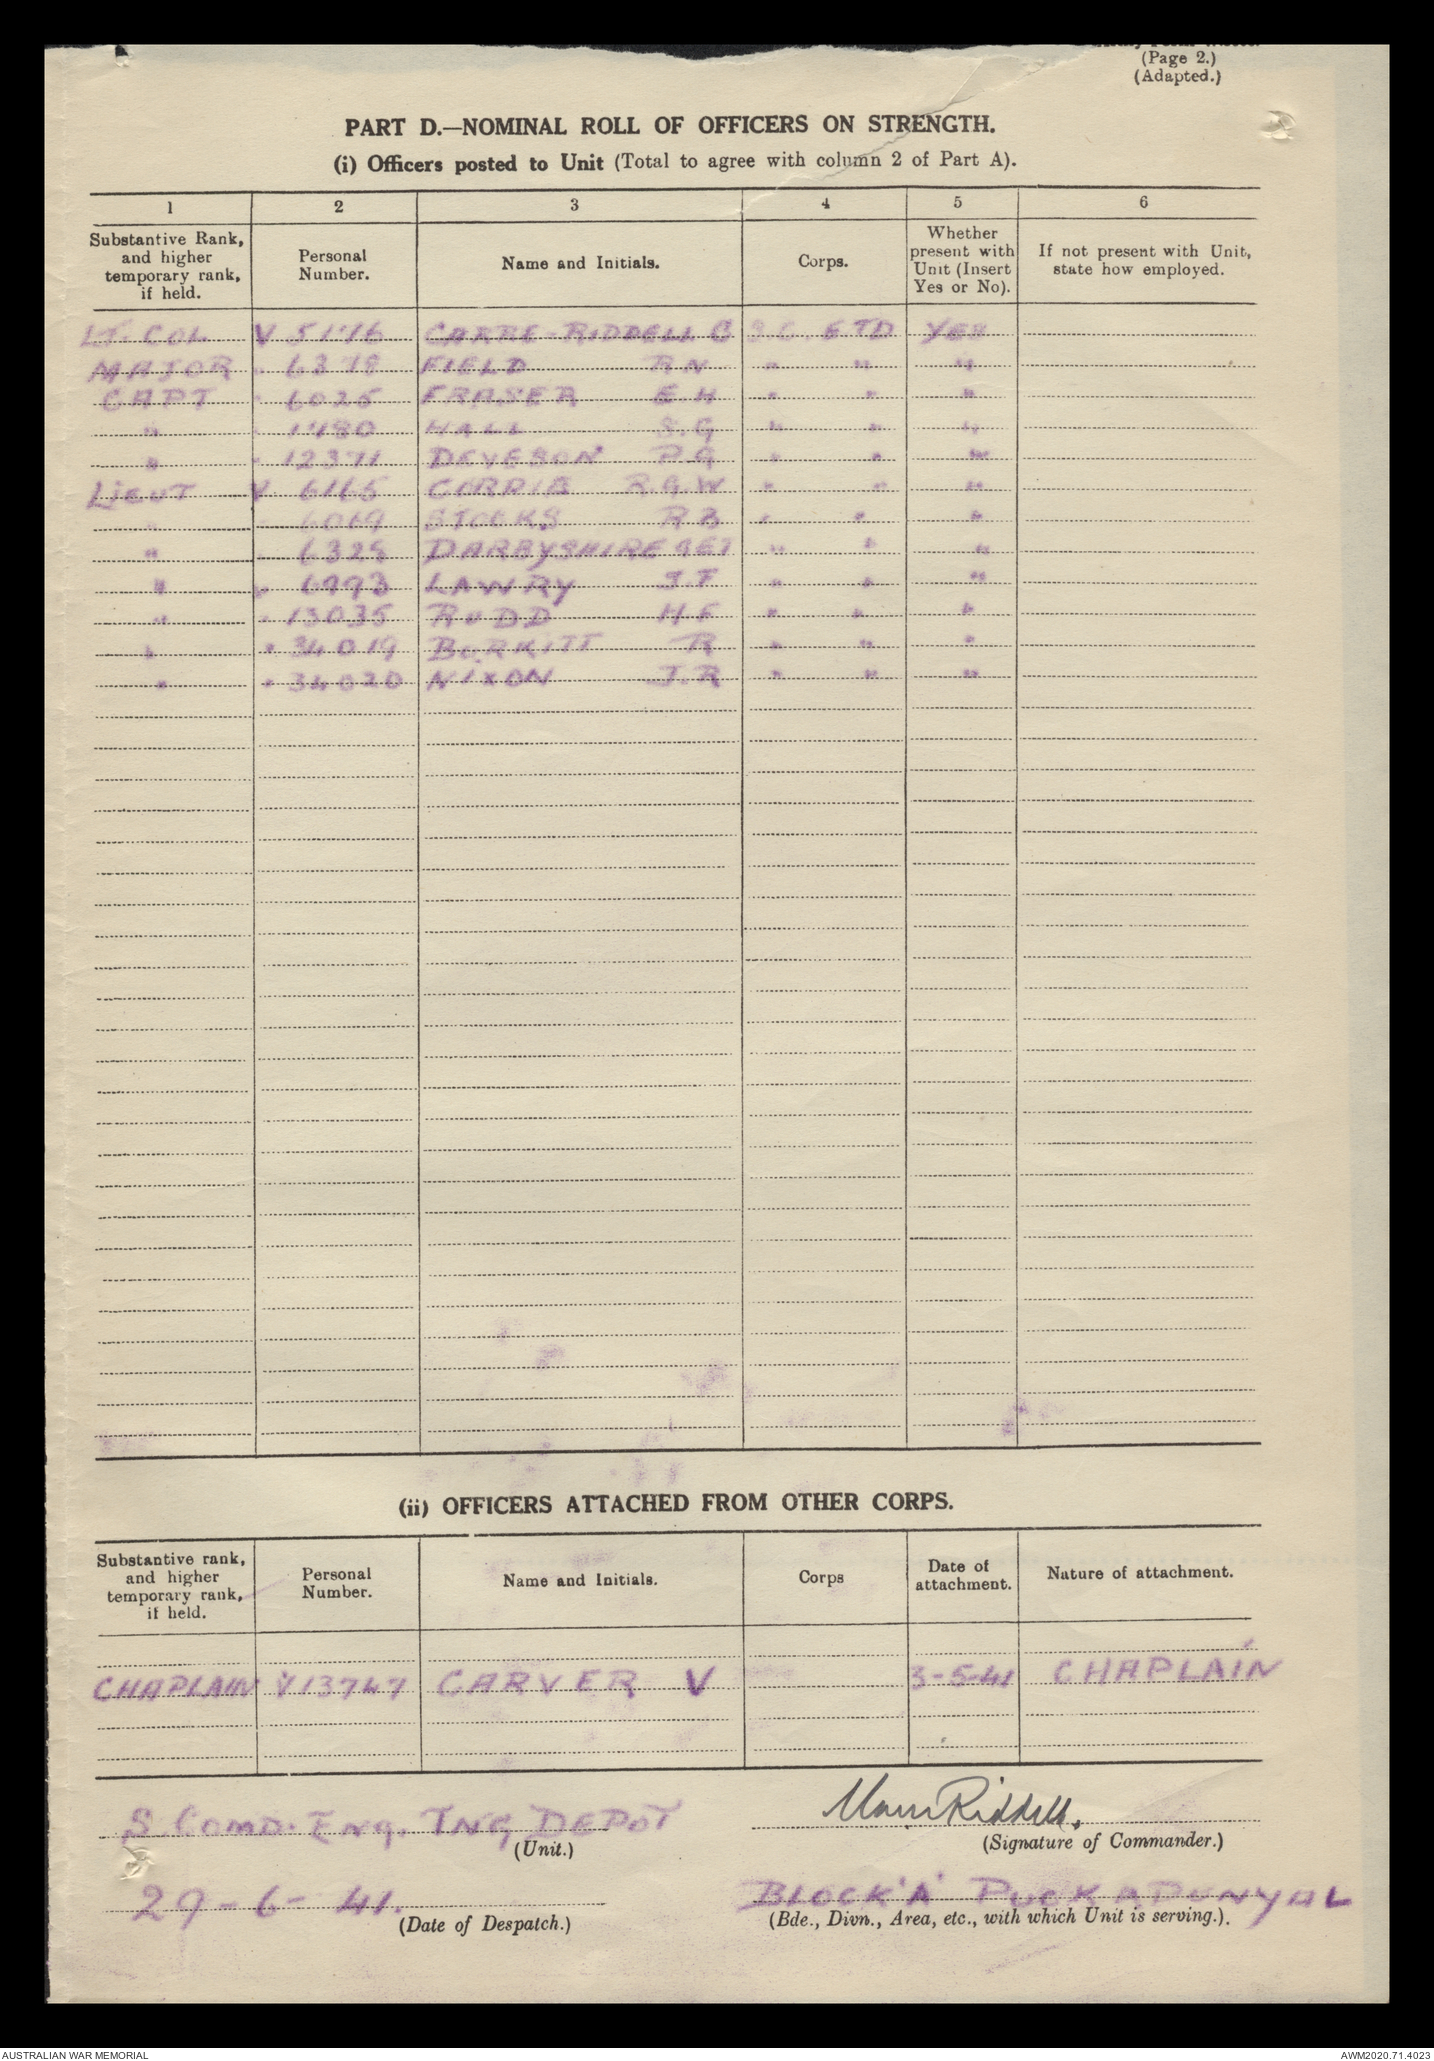 (Page 2.)
(Adapted.)
PART D.—NOMINAL ROLL OF OFFICERS ON STRENGTH.
(i) Officers posted to Unit (Total to agree with column 2 of Part A).
1 2 3 4 5 6
Substantive Rank, and higher temporary rank, if held. Personal Number. Name and Initials. Corps. Whether present with Unit (Insert Yes or No). If not present with Unit, state how employed.
LT. COL V 5176 CARRE-RIDDELL C S.C. ETD YES
MAJOR " 6378 FIELD R N " " "
CAPT " 6025 FRASER E H " " "
" " 1480 HALL S.G " " "
" " 12371 DEVESON P.G " " "
LIEUT V 6165 R.G.W " " "
" " 6069 STOCKS R B " " "
" 6328 DARBYSHIRE " " "
" " 6993 LAWRY J.F " " "
" " 13035 RUDD H F " " "
" " 34019 BURKITT R " " "
" " 34020 NIXON J.R " " "
(ii) OFFICERS ATTACHED FROM OTHER CORPS.
Substantive rank, and higher temporary rank, if held. Personal Number. Name and Initials. Corps Date of attachment. Nature of attachment.
CHAPLAIN V13747 CARVER V 3-5-41 CHAPLAIN
S. COMD. ENG. TNG DEPOT
(Unit.)
Riddell.
(Signature of Commander.)
29-6-41.
(Date of Despatch.)
BLOCK 'A' PUCKAPUNYAL
(Bde., Divn., Area, etc., with which Unit is serving.).
AUSTRALIAN WAR MEMORIAL
AWM2020.71.4023